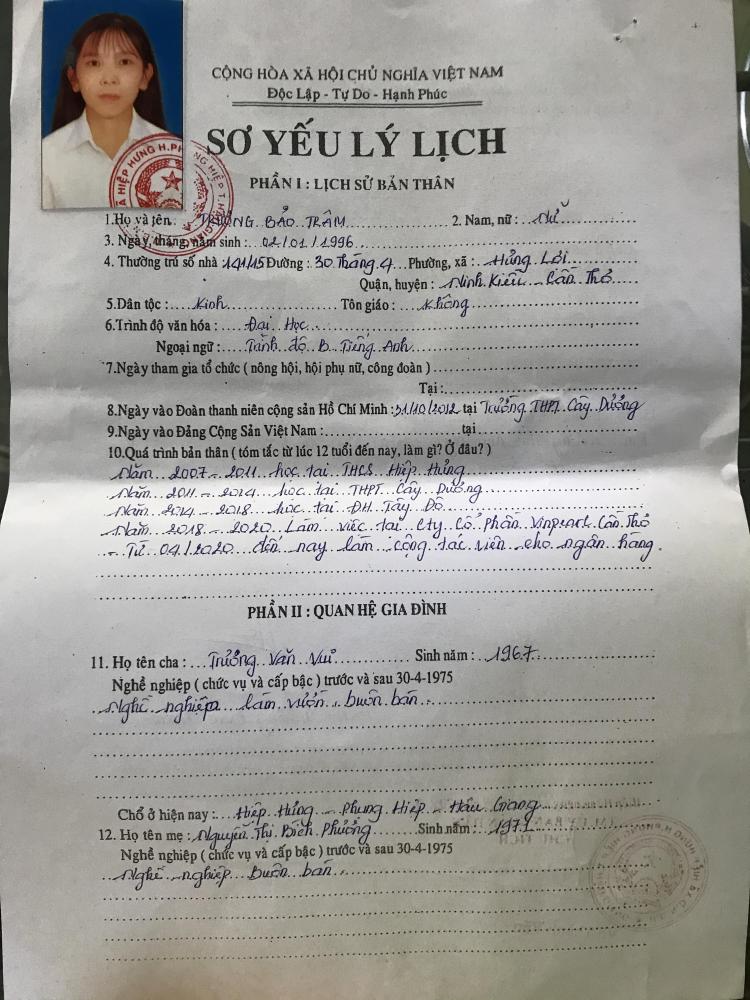 CỘNG HÒA XÃ HỘI CHỦ NGHĨA VIỆT NAM
Độc Lập - Tự Do - Hạnh Phúc
SƠ YẾU LÝ LỊCH
PHẦN I : LỊCH SỬ BẢN THÂN
1.Họ và tên : TRƯƠNG BẢO TRÂM 2. Nam, nữ : Nữ
3. Ngày, tháng, năm sinh : 02/01/1996
4. Thường trú số nhà 141/15 Đường : 30 Tháng 4 Phường, xã : Hưng Lợi
Quận, huyện : Ninh Kiều - Cần Thơ
5.Dân tộc : Kinh Tôn giáo : Không
6.Trình độ văn hóa : Đại Học
Ngoại ngữ : Trình độ B Tiếng Anh
7.Ngày tham gia tổ chức ( nông hội, hội phụ nữ, công đoàn )
Tại :
8.Ngày vào Đoàn thanh niên cộng sản Hồ Chí Minh : 31/10/2012 tại Trường THPT Cây Dương
9.Ngày vào Đảng Cộng Sản Việt Nam : tại
10.Quá trình bản thân ( tóm tắc từ lúc 12 tuổi đến nay, làm gì? Ở đâu? )
Năm 2007 - 2011 học tại THCS Hiệp Hưng
Năm 2011 - 2014 học tại THPT Cây Dương
Năm 2014 - 2018 học tại ĐH Tây Đô
Năm 2018 - 2020 Làm việc tại Cty Cổ Phần Vinpearl Cần Thơ
- Từ 04/2020 đến nay làm cộng tác viên cho ngân hàng.
PHẦN II : QUAN HỆ GIA ĐÌNH
11. Họ tên cha : Trương Văn Vui Sinh năm : 1967
Nghề nghiệp ( chức vụ và cấp bậc ) trước và sau 30-4-1975
Nghề nghiệp làm vườn buôn bán
Chổ ở hiện nay : Hiệp Hưng - Phụng Hiệp - Hậu Giang
12. Họ tên mẹ : Nguyễn Thị Bích Phượng Sinh năm : 1971
Nghề nghiệp ( chức vụ và cấp bậc ) trước và sau 30-4-1975
Nghề nghiệp buôn bán